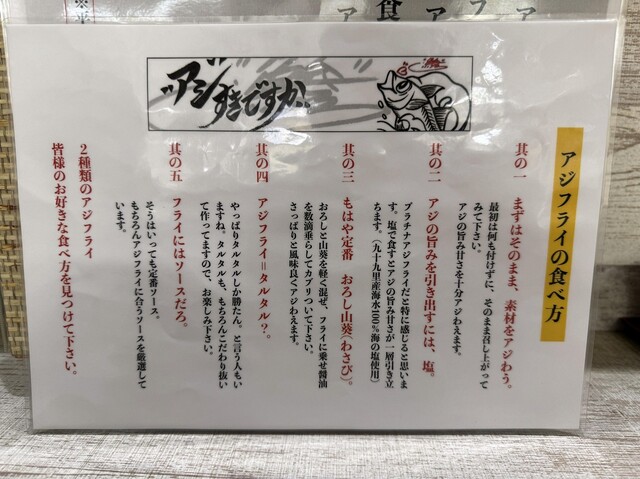 ※平
食べ
アジ
アジ
"アジ"すきですか。
アジフライの食べ方
其の一 まずはそのまま、素材をアジわう。
最初は何も付けずに、そのまま召し上がって
みて下さい。
アジの旨み甘さを十分アジわえます。
其の二 アジの旨みを引き出すには、塩。
プラチナアジフライだと特に感じると思いま
す。塩で食すとアジの旨み甘さが一層引き立
ちます。（九十九里産海水100％海の塩使用）
其の三 もはや定番 おろし山葵（わさび）。
おろしと山葵を軽く混ぜ、フライに乗せ醤油
を数滴垂らしてカブりついて下さい。
さっぱりと風味良くアジわえます。
其の四 アジフライ＝タルタル？。
やっぱりタルタルしか勝たん。と言う人もい
ますね、タルタルも、もちろんこだわり抜い
て作ってますので、お楽しみ下さい。
其の五 フライにはソースだろ。
そうはいっても定番ソース。
もちろんアジフライに合うソースを厳選して
います。
2種類のアジフライ
皆様のお好きな食べ方を見つけて下さい。